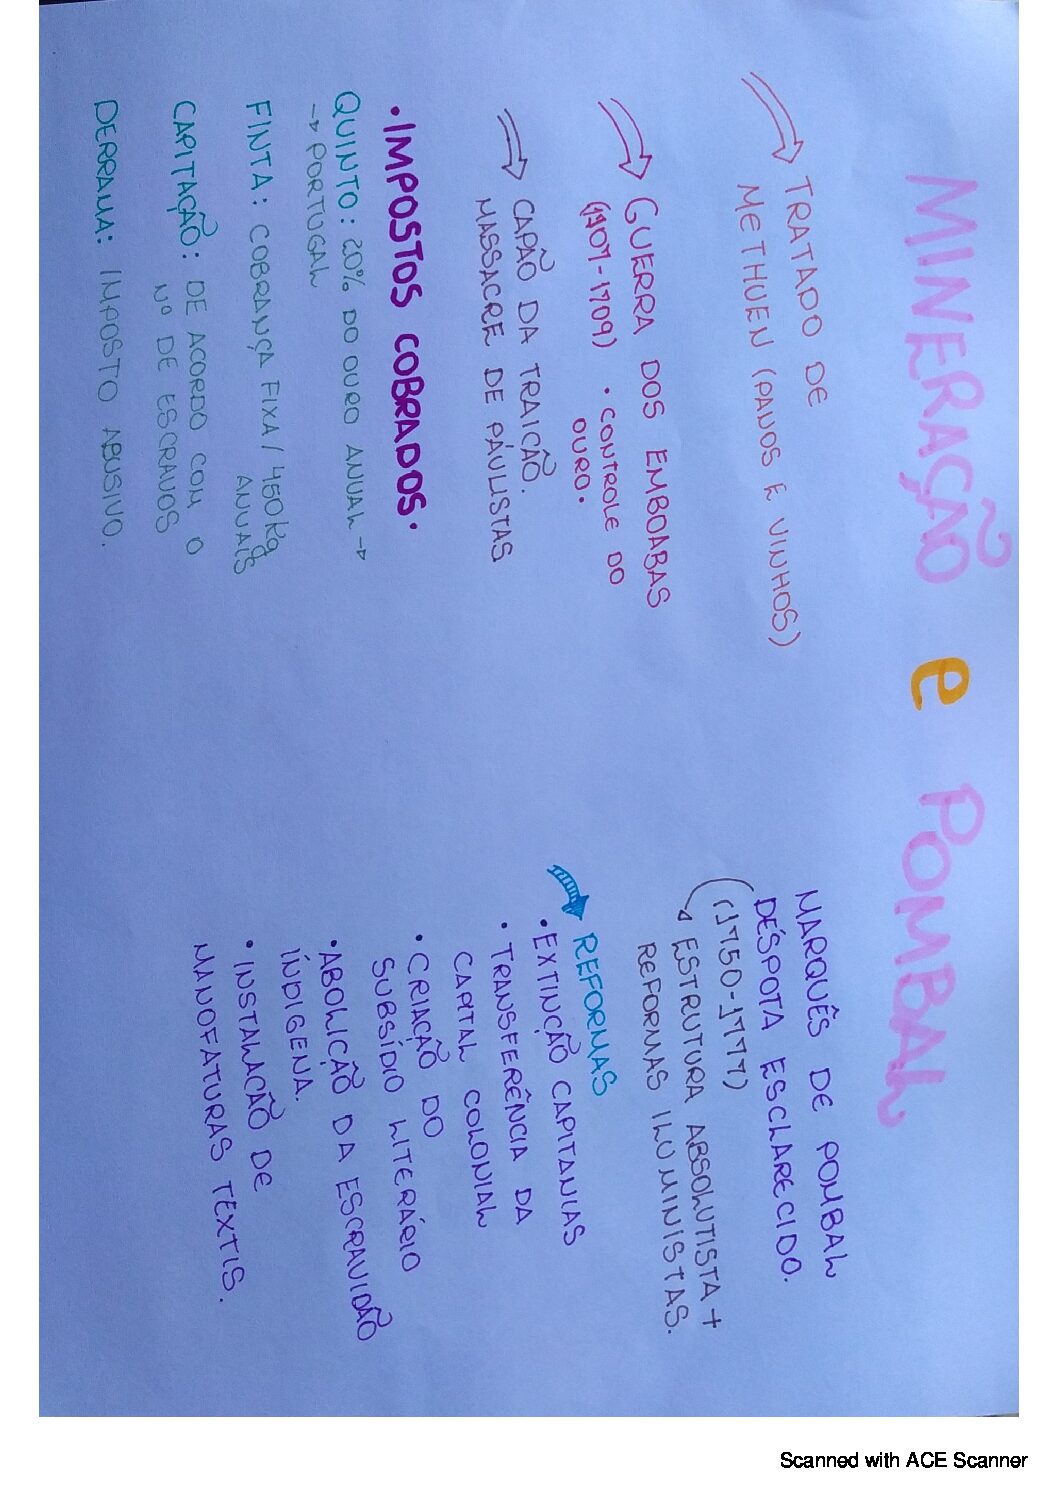 MINERAÇÃO e POMBAL
TRATADO DE
METHUEN (PANOS E VINHOS)
GUERRA DOS EMBOABAS
(1707-1709) • CONTROLE DO
OURO.
CAPÃO DA TRAIÇÃO.
MASSACRE DE PAULISTAS
• IMPOSTOS COBRADOS •
QUINTO: 20% DO OURO ANUAL →
→ PORTUGAL
FINTA: COBRANÇA FIXA / 450kg
ANUAIS
CAPITAÇÃO: DE ACORDO COM O
Nº DE ESCRAVOS
DERRAMA: IMPOSTO ABUSIVO.
MARQUÊS DE POMBAL
DÉSPOTA ESCLARECIDO.
(1750-1777)
ESTRUTURA ABSOLUTISTA +
REFORMAS ILUMINISTAS.
REFORMAS
• EXTINÇÃO CAPITANIAS
• TRANSFERÊNCIA DA
CAPITAL COLONIAL
• CRIAÇÃO DO
SUBSÍDIO LITERÁRIO
• ABOLIÇÃO DA ESCRAVIDÃO
ÍNDIGENA.
• INSTALAÇÃO DE
MANOFATURAS TÊXTIS.
Scanned with ACE Scanner